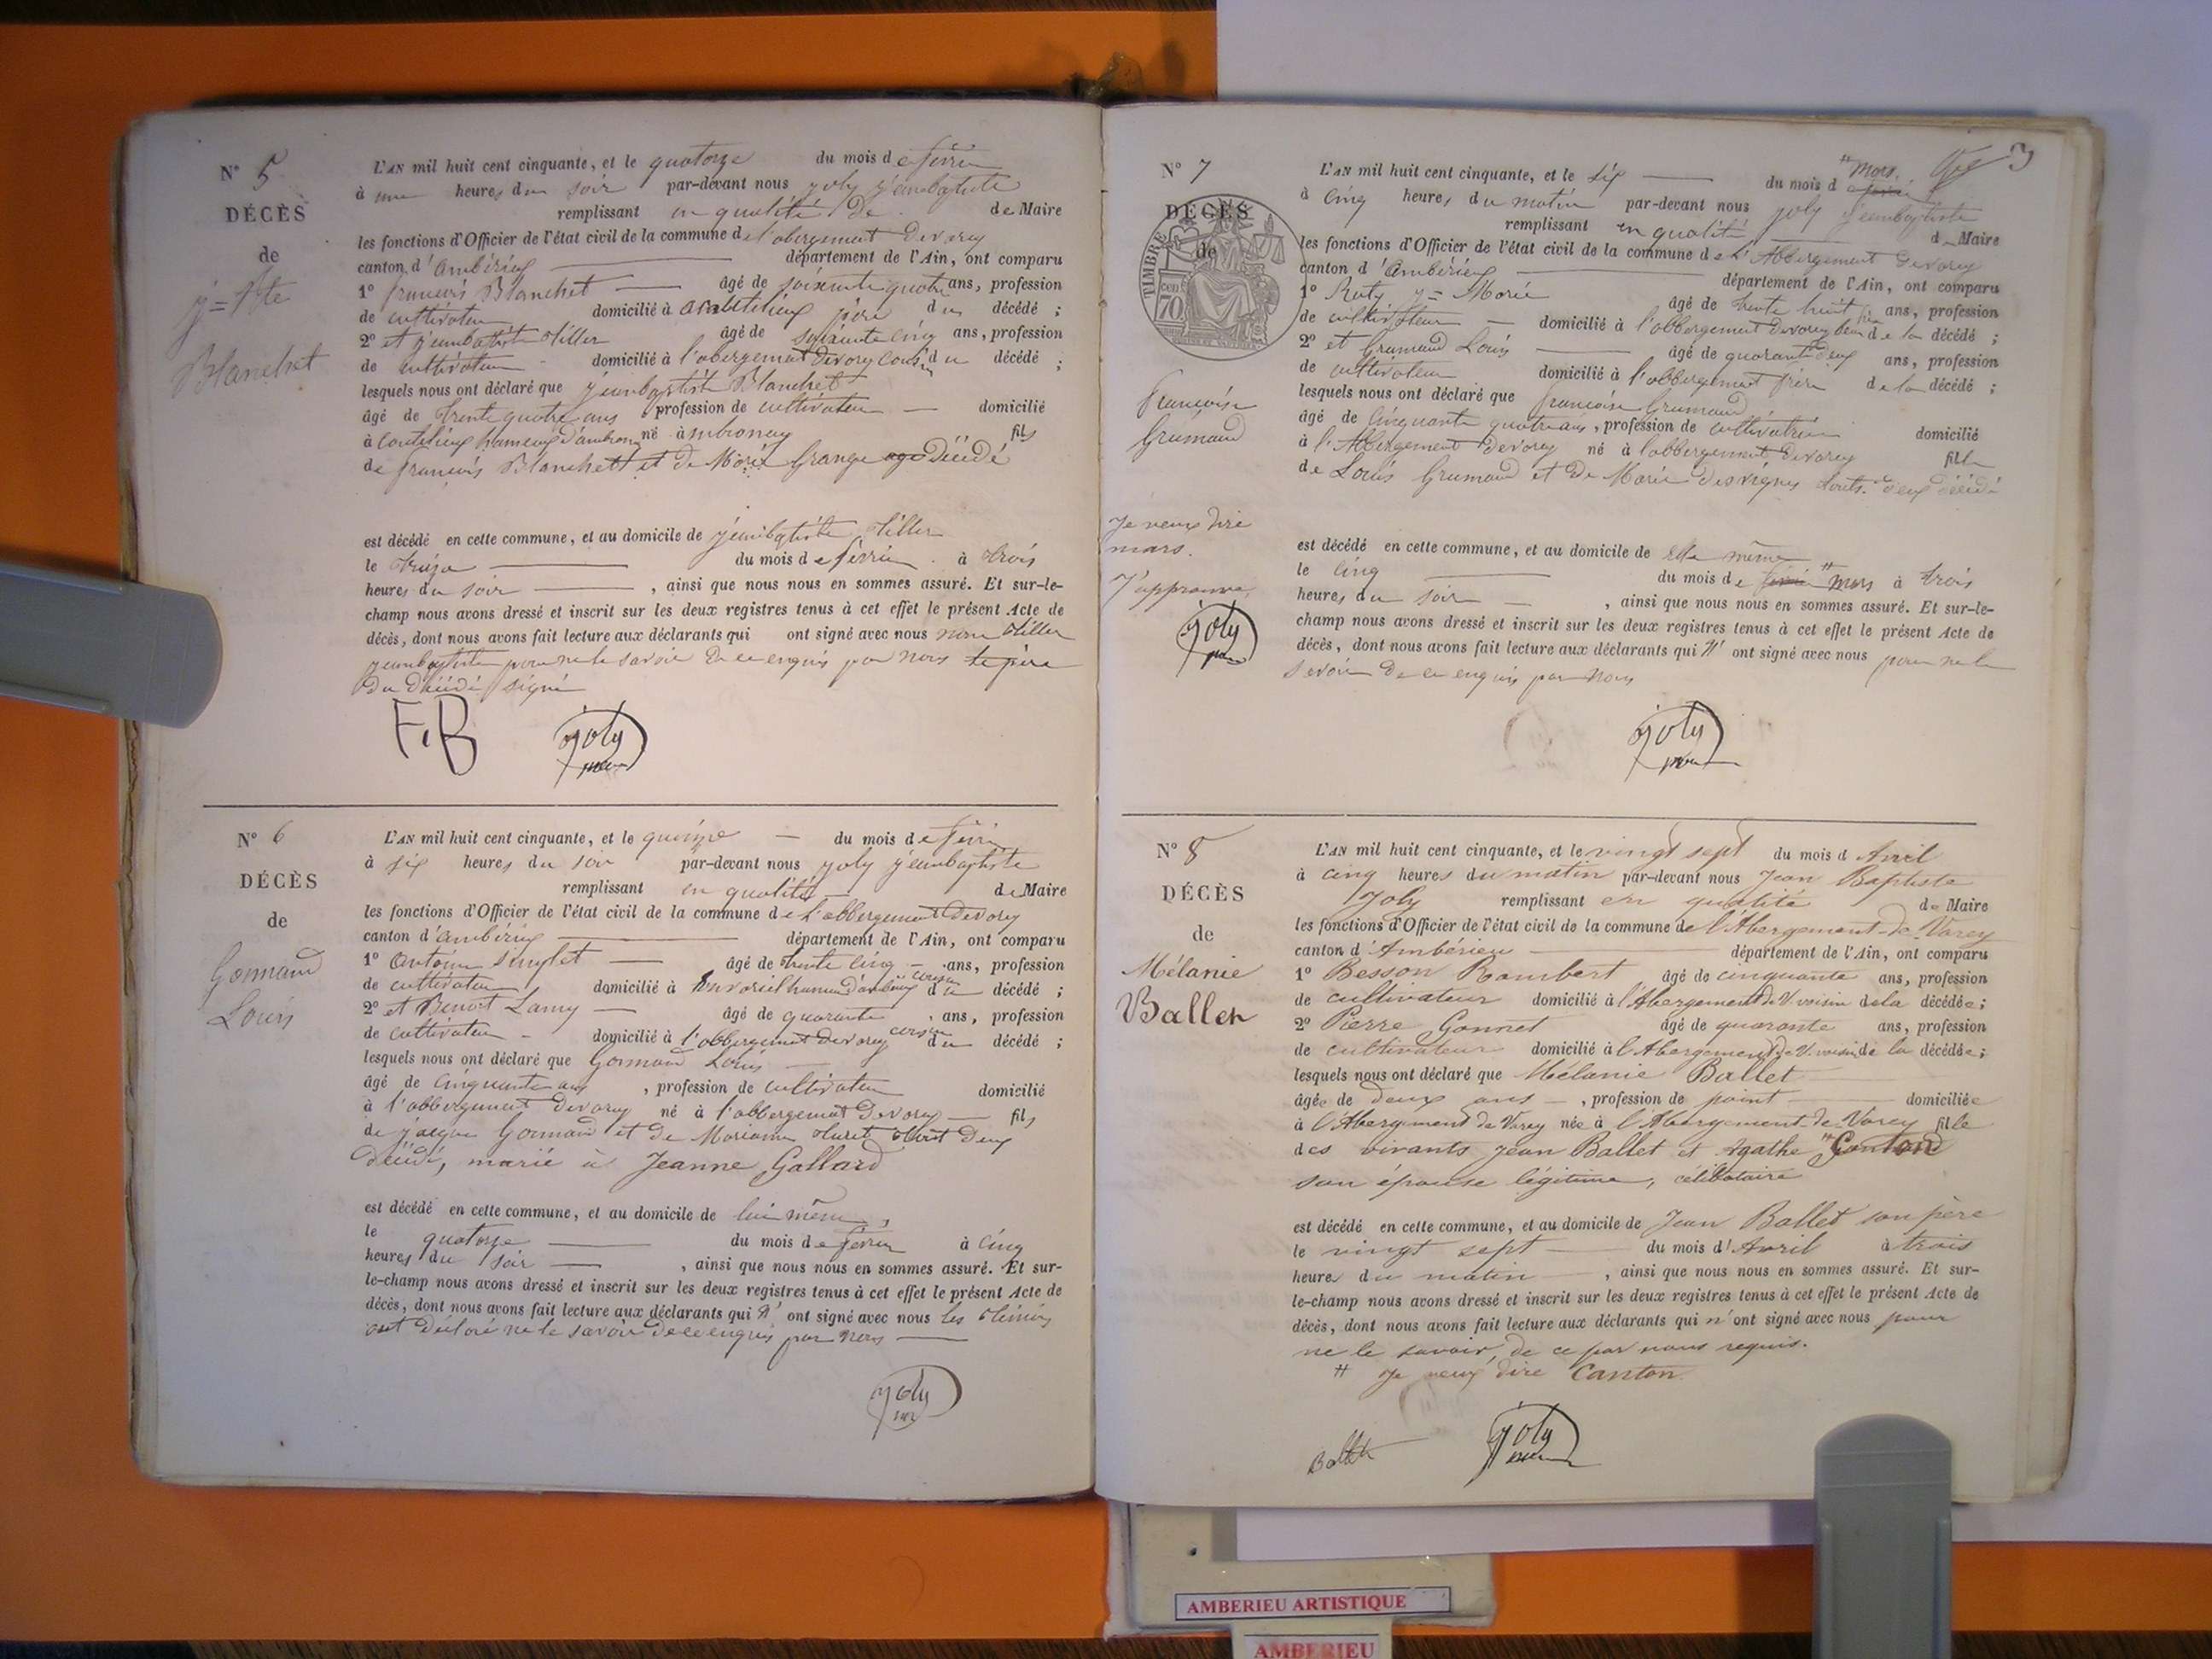 N° 5
DÉCÈS
de
j=Bte
Blanchet
L'AN mil huit cent cinquante, et le quatorze du mois de févrie
à une heures du soir par-devant nous joly jeanbaptiste
remplissant en qualité de de Maire
les fonctions d'Officier de l'état civil de la commune de l'abergement devarey
canton d'ambérieu département de l'Ain, ont comparu
1° francois Blanchet âgé de soixante quatre ans, profession
de cultivateur domicilié à père du décédé ;
2° et jeanbatiste tiller âgé de soixante cinq ans, profession
de cultivateur domicilié à l'abergement devarey cousin du décédé ;
lesquels nous ont déclaré que jeanbaptiste Blanchet
âgé de trente quatre ans profession de cultivateur domicilié
à hameau d'ambronay né ambronay fils
de francois Blanchet et de Marie Grange décédé
est décédé en cette commune, et au domicile de jeanbatiste tiller
le treize du mois de févrie à trois
heures du soir , ainsi que nous nous en sommes assuré. Et sur-le-
champ nous avons dressé et inscrit sur les deux registres tenus à cet effet le présent Acte de
décès, dont nous avons fait lecture aux déclarants qui ont signé avec nous non tiller
jeanbaptiste pour ne le savoir de ce enquis par nous le père
du décédé signé
F.B joly maire
N° 6
DÉCÈS
de
Gonnand
Louis
L'AN mil huit cent cinquante, et le quinze du mois de févri
à six heures du soir par-devant nous joly jeanbaptiste
remplissant en qualité de Maire
les fonctions d'Officier de l'état civil de la commune de l'abbergement devarey
canton d'ambérieu département de l'Ain, ont comparu
1° antoine singlet âgé de trente cinq ans, profession
de cultivateur domicilié à cousin du décédé ;
2° et Benoit Lamy âgé de quarante ans, profession
de cultivateur domicilié à l'abbergement devarey cousin du décédé ;
lesquels nous ont déclaré que Gonnand Louis
âgé de cinquante ans , profession de cultivateur domicilié
à l'abbergement devarey né à l'abbergement devarey fils
de jacque Gonnand et de Marianne tout deux
décédé, marié à Jeanne Gallard
est décédé en cette commune, et au domicile de lui même,
le quatorze du mois de févrie à cinq
heures du soir , ainsi que nous nous en sommes assuré. Et sur-
le-champ nous avons dressé et inscrit sur les deux registres tenus à cet effet le présent Acte de
décès, dont nous avons fait lecture aux déclarants qui n' ont signé avec nous les témins
ont déclaré ne le savoir de ce enquis par nous
joly
N° 7
DÉCÈS
de
TIMBRE
70
Francoise
Grumaud
Je veux dire
mars.
J'approuve,
joly
3
L'AN mil huit cent cinquante, et le six du mois de # mars
à cinq heures du matin par-devant nous joly jeanbaptiste
remplissant en qualité de Maire
les fonctions d'Officier de l'état civil de la commune de l'Abbergement devarey
canton d'Ambérieu département de l'Ain, ont comparu
1° Ruty j= Marie âgé de trente huit ans, profession
de cultivateur domicilié à l'abbergement devarey de la décédé ;
2° et Grumaud Louis âgé de quarante deux ans, profession
de cultivateur domicilié à l'abbergement frère de la décédé ;
lesquels nous ont déclaré que francoise Grumaud
âgé de cinquante quatre ans, profession de cultivatrice domicilié
à l'Abbergement devarey né à l'abbergement devarey fille
de Louis Grumaud et de Marie desvignes touts deux décédé
est décédé en cette commune, et au domicile de elle même
le cinq du mois de # mars à trois
heures du soir , ainsi que nous nous en sommes assuré. Et sur-le-
champ nous avons dressé et inscrit sur les deux registres tenus à cet effet le présent Acte de
décès, dont nous avons fait lecture aux déclarants qui n' ont signé avec nous pour ne le
savoir de ce enquis par nous
joly maire
N° 8
DÉCÈS
de
Mélanie
Ballet
L'AN mil huit cent cinquante, et le vingt sept du mois d Avril
à cinq heures du matin par-devant nous Jean Baptiste
Joly remplissant en qualité de Maire
les fonctions d'Officier de l'état civil de la commune de l'Abergement-de-Varey
canton d'Ambérieu département de l'Ain, ont comparu
1° Besson Rambert âgé de cinquante ans, profession
de cultivateur domicilié à l'Abergement de V. voisin de la décédée ;
2° Pierre Gonnet âgé de quarante ans, profession
de cultivateur domicilié à l'Abergement de V. voisin de la décédée ;
lesquels nous ont déclaré que Mélanie Ballet
âgée de deux ans , profession de point domiciliée
à l'Abergement de Varey née à l'Abergement de Varey fille
des vivants Jean Ballet et Agathe # Canton
son épouse légitime, célibataire
est décédé en cette commune, et au domicile de Jean Ballet son père
le vingt sept du mois d'Avril à trois
heures du matin , ainsi que nous nous en sommes assuré. Et sur-
le-champ nous avons dressé et inscrit sur les deux registres tenus à cet effet le présent Acte de
décès, dont nous avons fait lecture aux déclarants qui n'ont signé avec nous pour
ne le savoir, de ce par nous requis.
# Je veux dire Canton
Ballet joly maire
AMBERIEU ARTISTIQUE
AMBERIEU